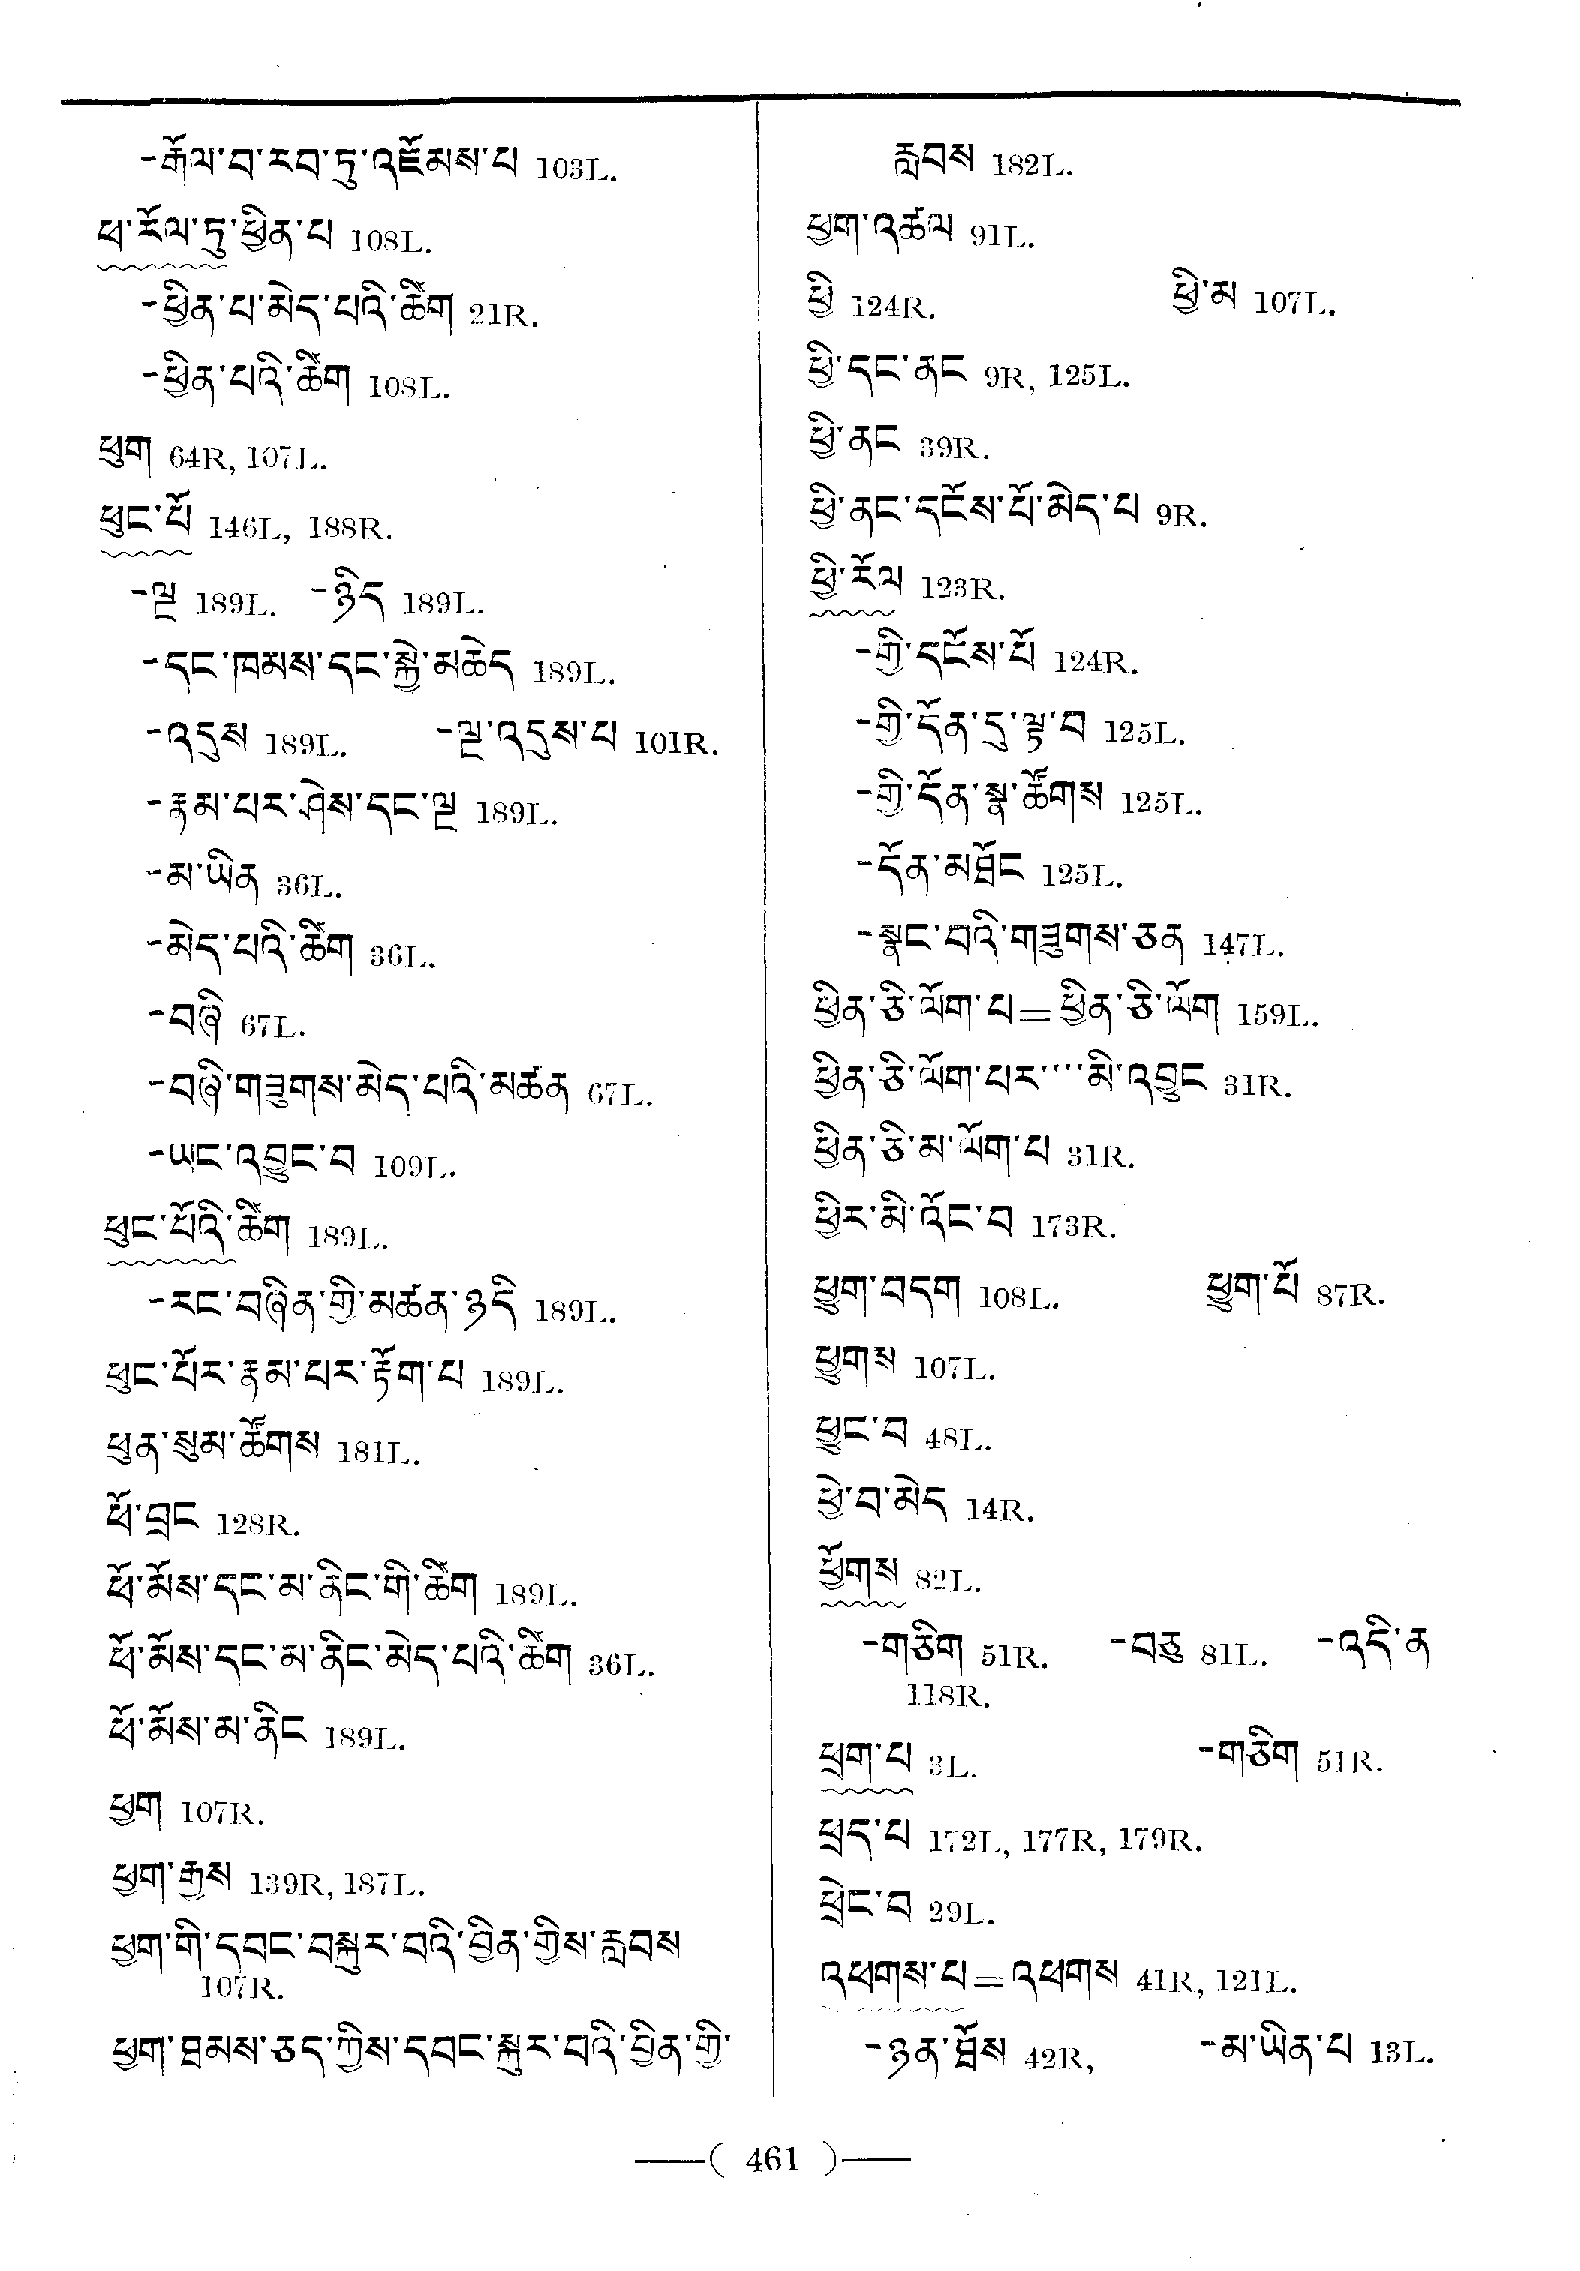 -རྒོལ་བ་རབ་ཏུ་འཇོམས་པ 103L.
ཕ་རོལ་ཏུ་ཕྱིན་པ 108L.
-ཕྱིན་པ་མེད་པའི་ཚིག 21R.
-ཕྱིན་པའི་ཚིག 108L.
ཕུག 64R, 107L.
ཕུང་པོ 146L, 188R.
-ལྔ 189L. -ཉིད 189L.
-དང་ཁམས་དང་སྐྱེ་མཆེད 189L.
-འདུས 189L. -ལྔ་འདུས་པ 101R.
-རྣམ་པར་ཤེས་དང་ལྔ 189L.
-མ་ཡིན 36L.
-མེད་པའི་ཚིག 36L.
-བཞི 67L.
-བཞི་གཟུགས་མེད་པའི་མཚན 67L.
-ཡང་འབྱུང་བ 109L.
ཕུང་པོའི་ཚིག 189L.
-རང་བཞིན་གྱི་མཚན་ཉདི 189L.
ཕུང་པོར་རྣམ་པར་རྟོག་པ 189L.
ཕུན་སུམ་ཚོགས 181L.
ཕོ་བྲང 128R.
ཕོ་མོས་དང་མ་ནིང་གི་ཚིག 189L.
ཕོ་མོས་དང་མ་ནིང་མེད་པའི་ཚིག 36L.
ཕོ་མོས་མ་ནིང 189L.
ཕྱག 107R.
ཕྱག་རྒྱས 139R, 187L.
ཕྱག་གི་དབང་བསྐུར་བའི་བྱིན་གྱིས་རླབས
107R.
ཕྱག་ཐམས་ཅད་ཀྱིས་དབང་སྐུར་བའི་བྱིན་གྱི་
རླབས 182L.
ཕྱག་འཚལ 91L.
ཕྱི 124R. ཕྱི་མ 107L.
ཕྱི་དང་ནང 9R, 125L.
ཕྱི་ནང 39R.
ཕྱི་ནང་དངོས་པོ་མེད་པ 9R.
ཕྱི་རོལ 123R.
-གྱི་དངོས་པོ 124R.
-གྱི་དོན་དུ་ལྟ་བ 125L.
-གྱི་དོན་སྣ་ཚོགས 125L.
-དོན་མཐོང 125L.
-སྣང་བའི་གཟུགས་ཅན 147L.
ཕྱིན་ཅི་ལོག་པ=ཕྱིན་ཅི་ལོག 159L.
ཕྱིན་ཅི་ལོག་པར་་་་མི་འབྱུང 31R.
ཕྱིན་ཅི་མ་ལོག་པ 31R.
ཕྱིར་མི་འོང་བ 173R.
ཕྱུག་བདག 108L. ཕྱུག་པོ 87R.
ཕྱུགས 107L.
ཕྱུང་བ 48L.
ཕྱེ་བ་མེད 14R.
ཕྱོགས 82L.
-གཅིག 51R. -བཅུ 81L. -འདི་ན
118R.
ཕྲག་པ 3L. -གཅིག 51R.
ཕྲད་པ 172L, 177R, 179R.
ཕྲེང་བ 29L.
འཕགས་པ=འཕགས 41R, 121L.
-ཉན་ཐོས 42R, -མ་ཡིན་པ 13L.
—( 461 )—